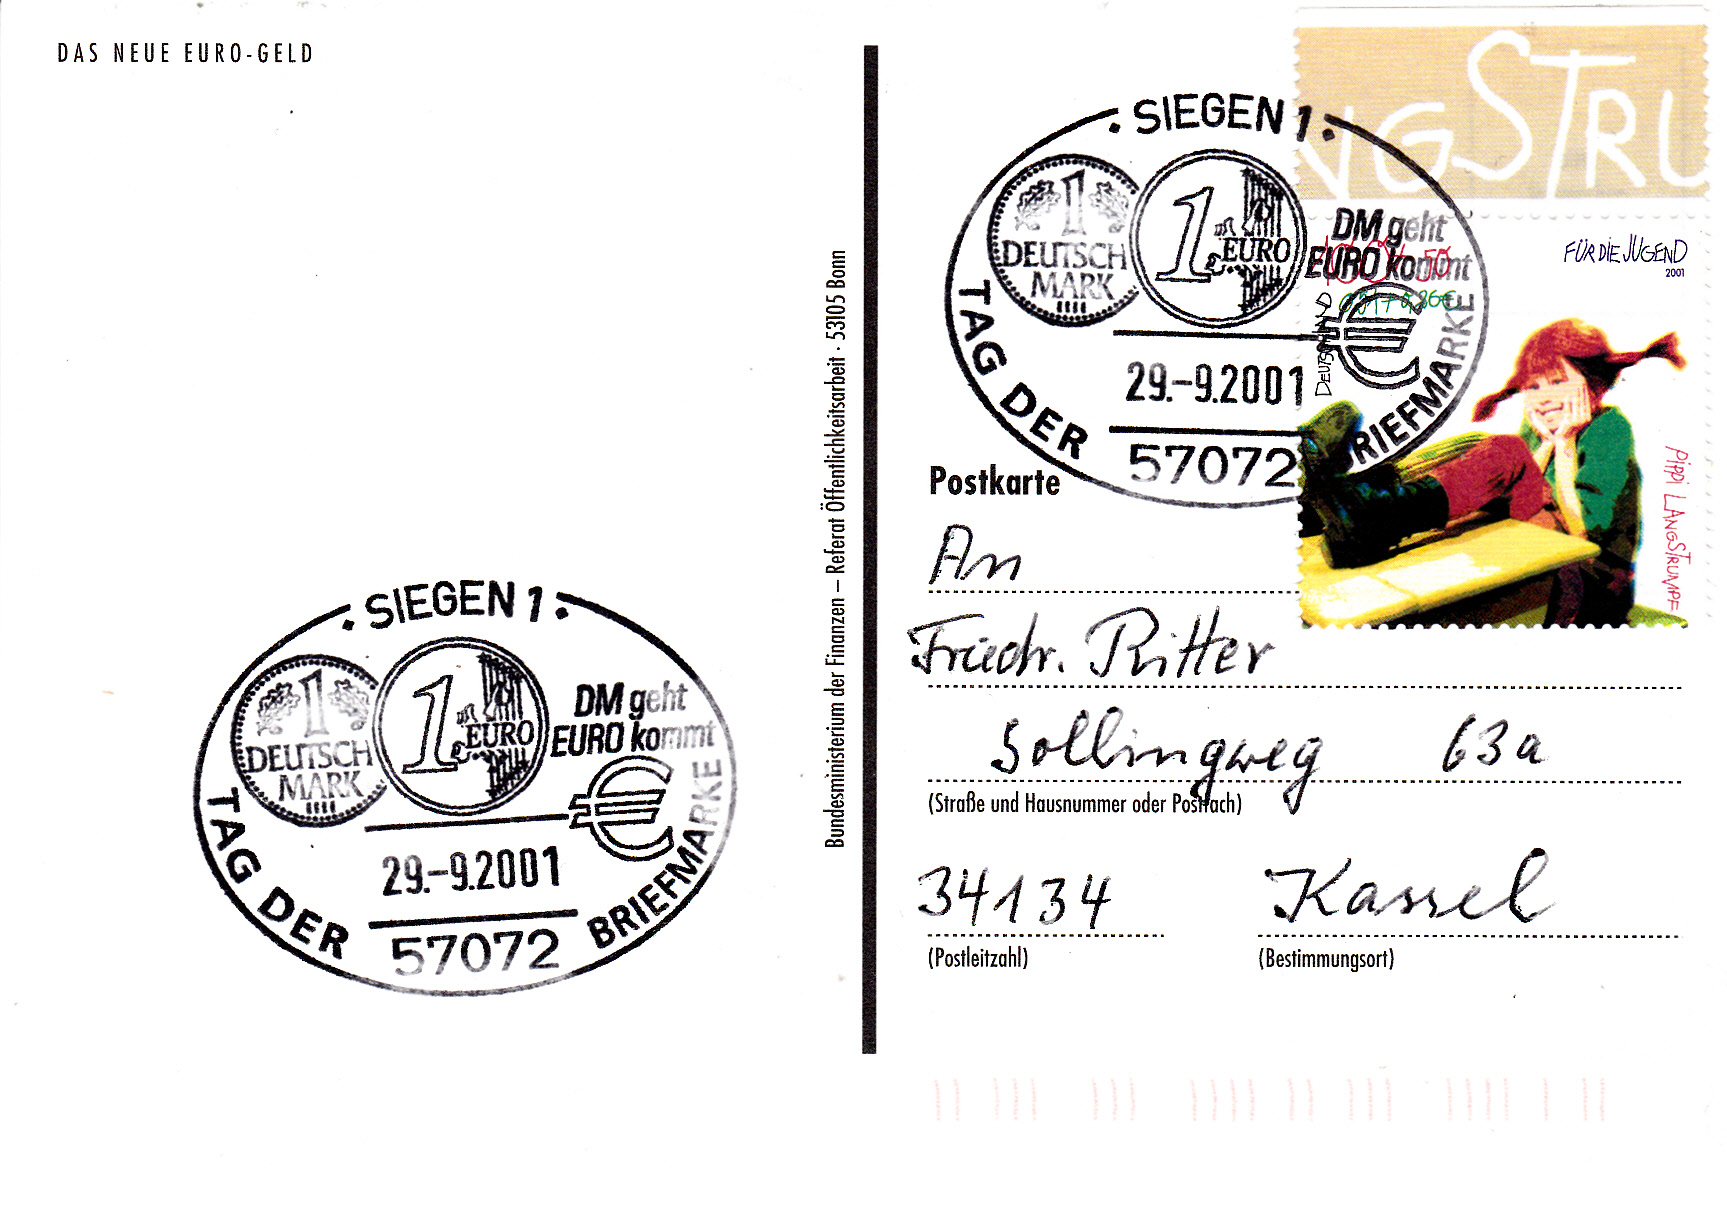 DAS NEUE EURO-GELD
SIEGEN 1
1
DEUTSCH
MARK
1
EURO
DM geht
EURO kommt
29.-9.2001
57072
TAG DER BRIEFMARKE
Bundesministerium der Finanzen – Referat Öffentlichkeitsarbeit · 53105 Bonn
SIEGEN 1
1
DEUTSCH
MARK
1
EURO
DM geht
EURO kommt
29.-9.2001
57072
TAG DER BRIEFMARKE
NGSTRU
FÜR DIE JUGEND
2001
100 + 50
0,51 + 0,26 €
DEUTSCHLAND
PIPPI LANGSTRUMPF
Postkarte
An
Friedr. Ritter
Sollingweg 63a
(Straße und Hausnummer oder Postfach)
34134 Kassel
(Postleitzahl) (Bestimmungsort)